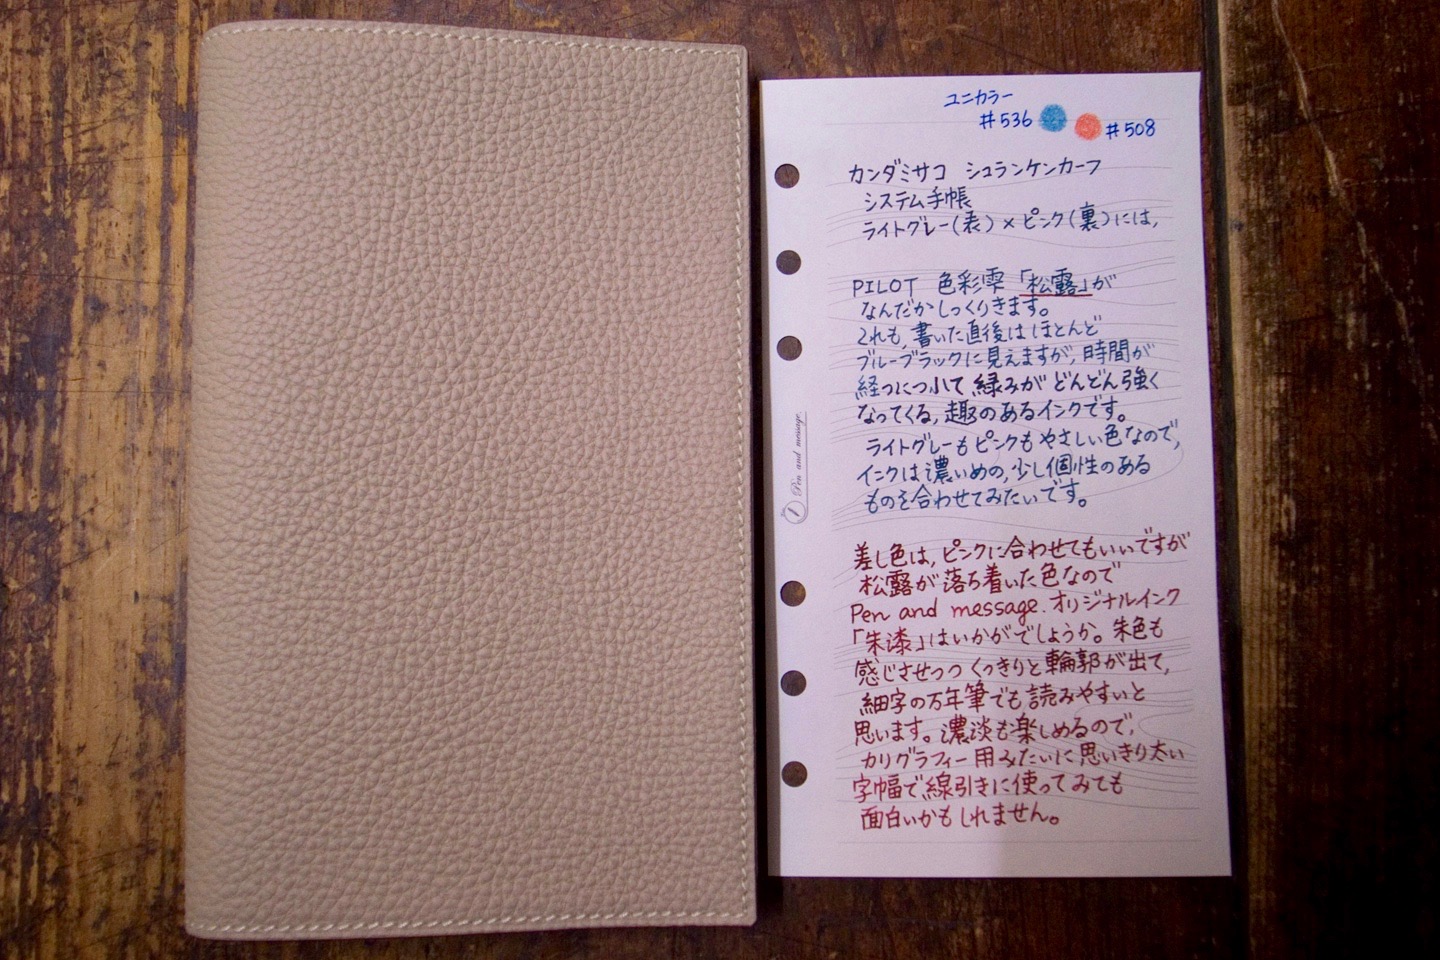 ユニカラー
#536
#508
カンダミサコ シュランケンカーフ
システム手帳
ライトグレー(表)×ピンク(裏)には、
PILOT 色彩雫「松露」が
なんだかしっくりきます。
これも、書いた直後はほとんど
ブルーブラックに見えますが、時間が
経つにつれて緑みがどんどん強く
なってくる、趣のあるインクです。
ライトグレーもピンクもやさしい色なので、
インクは濃いめの、少し個性のある
ものを合わせてみたいです。
差し色は、ピンクに合わせてもいいですが
松露が落ち着いた色なので
Pen and message.オリジナルインク
「朱漆」はいかがでしょうか。朱色も
感じさせつつくっきりと輪郭が出て、
細字の万年筆でも読みやすいと
思います。濃淡も楽しめるので、
カリグラフィー用みたいに思いきり太い
字幅で線引きに使ってみても
面白いかもしれません。
Pen and message.